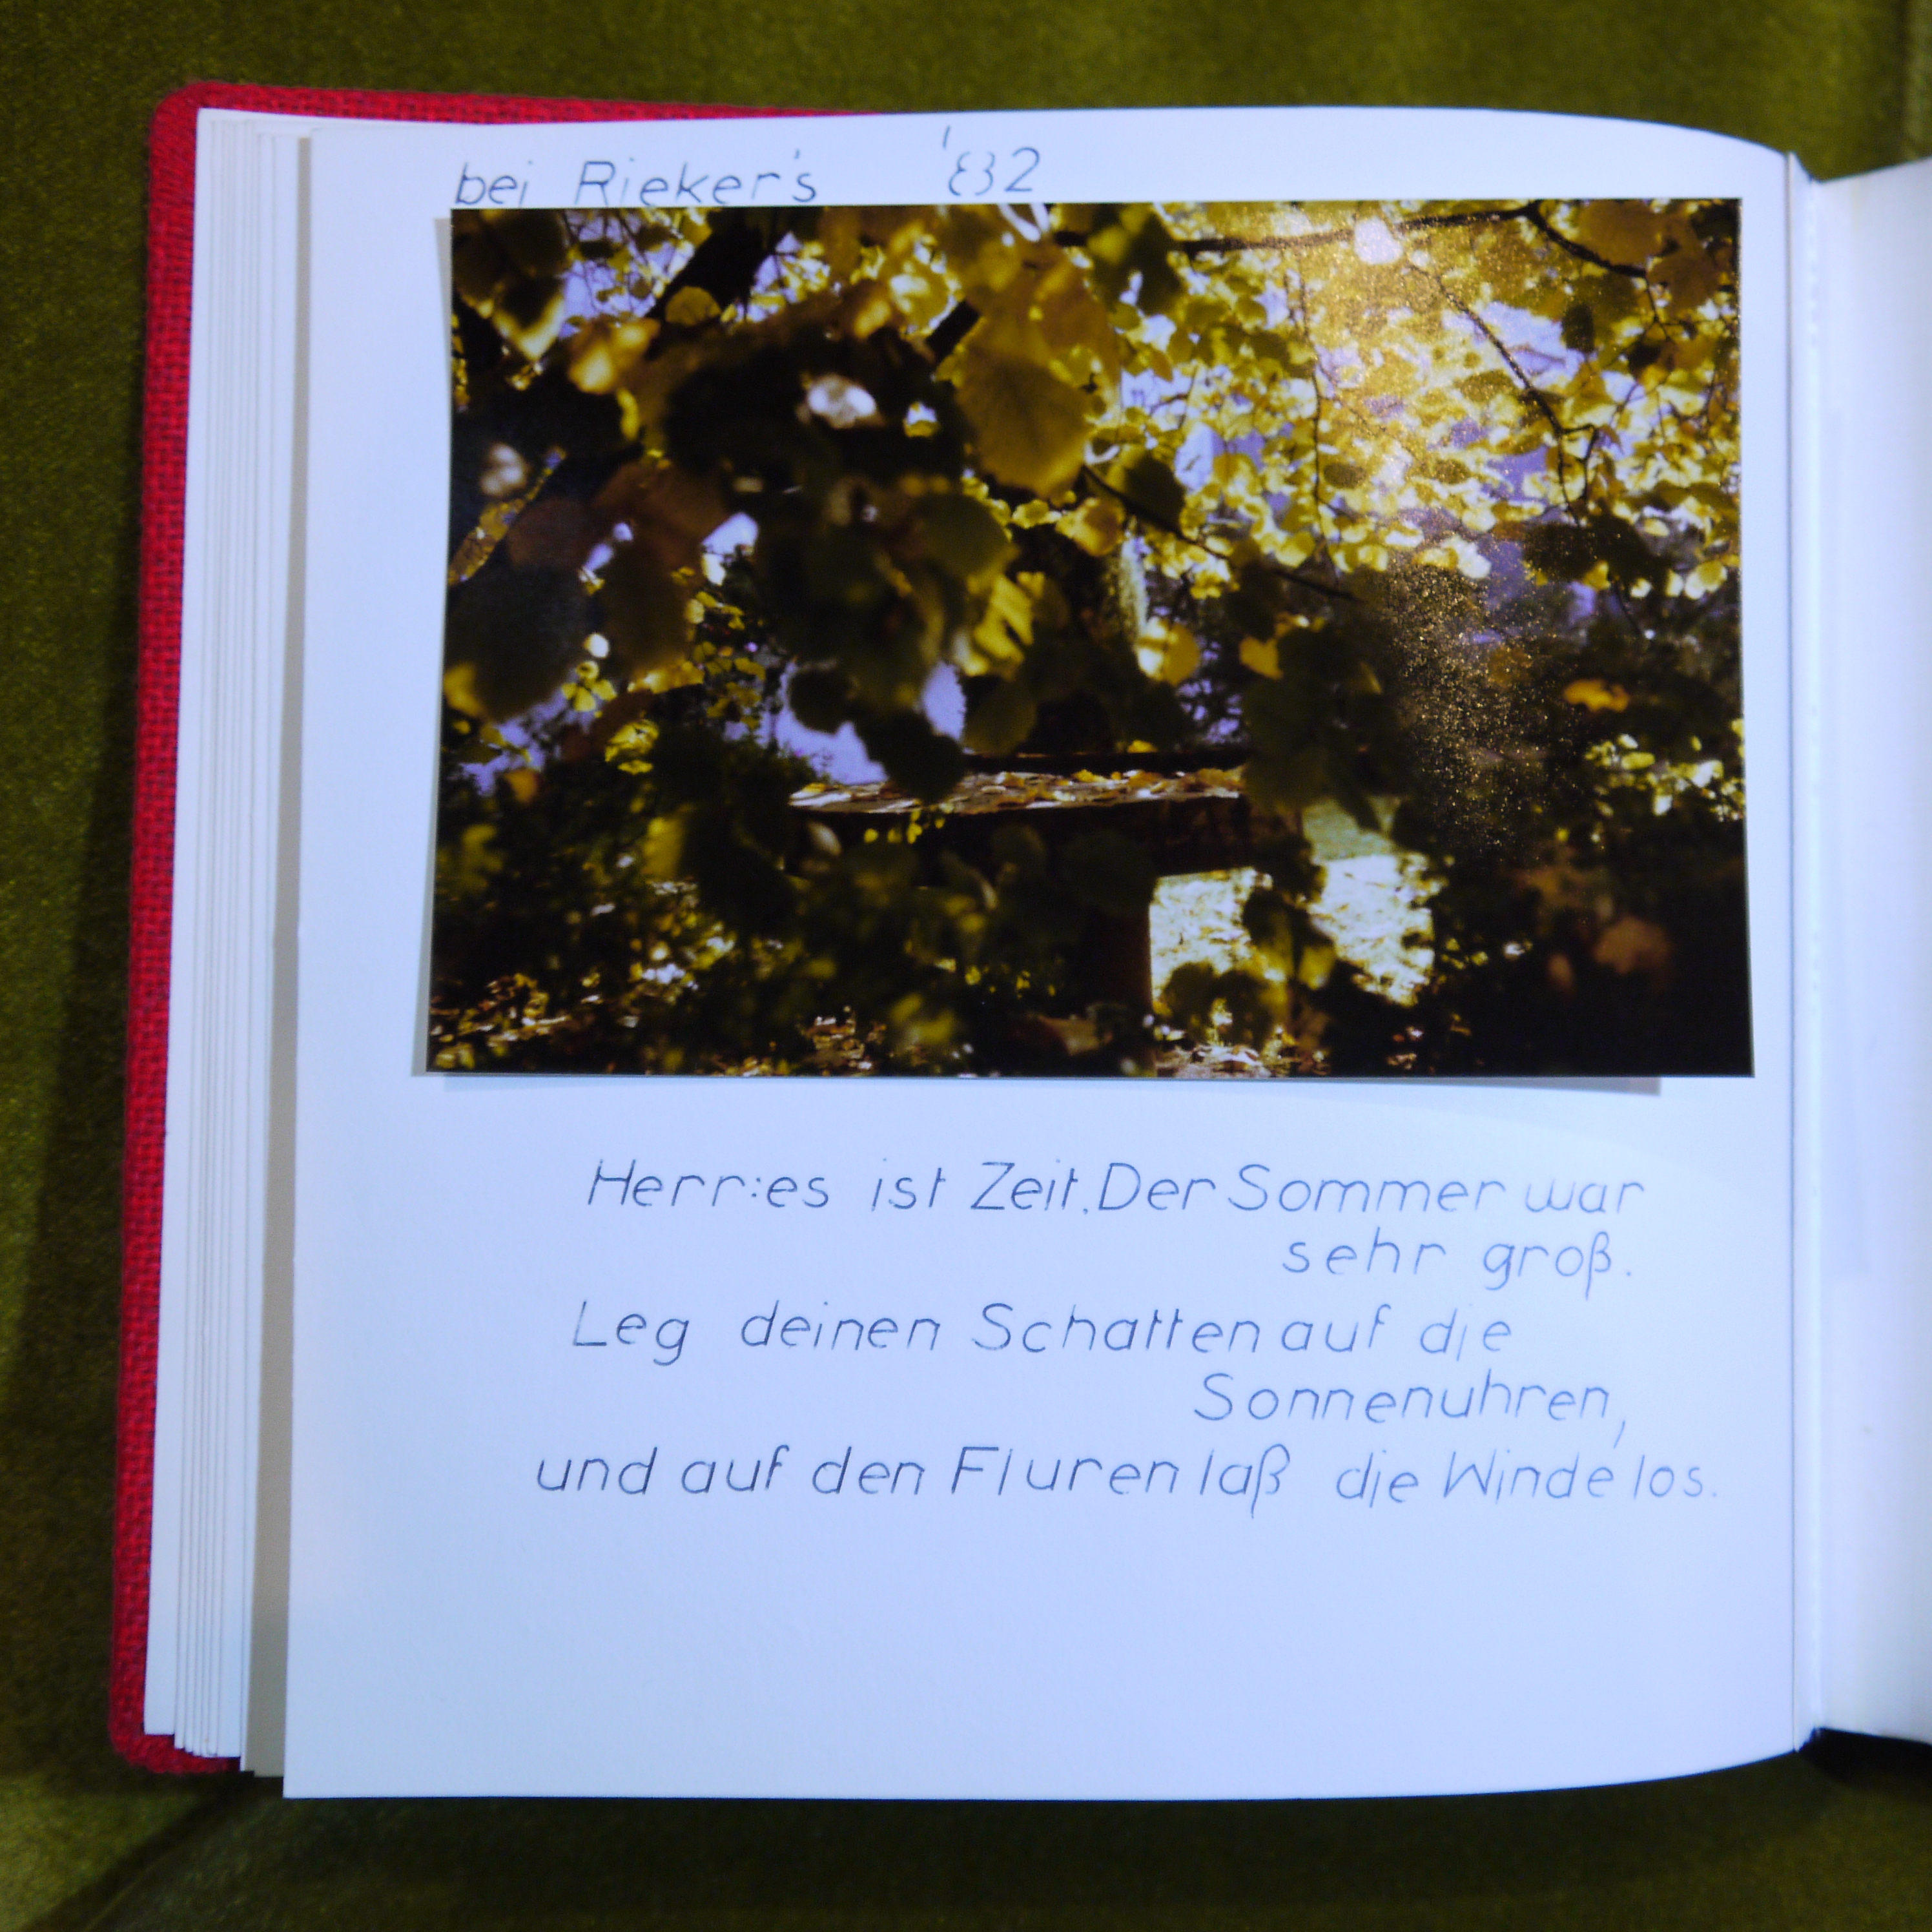 bei Rieker's '82
Herr: es ist Zeit. Der Sommer war
sehr groß.
Leg deinen Schatten auf die
Sonnenuhren,
und auf den Fluren laß die Winde los.